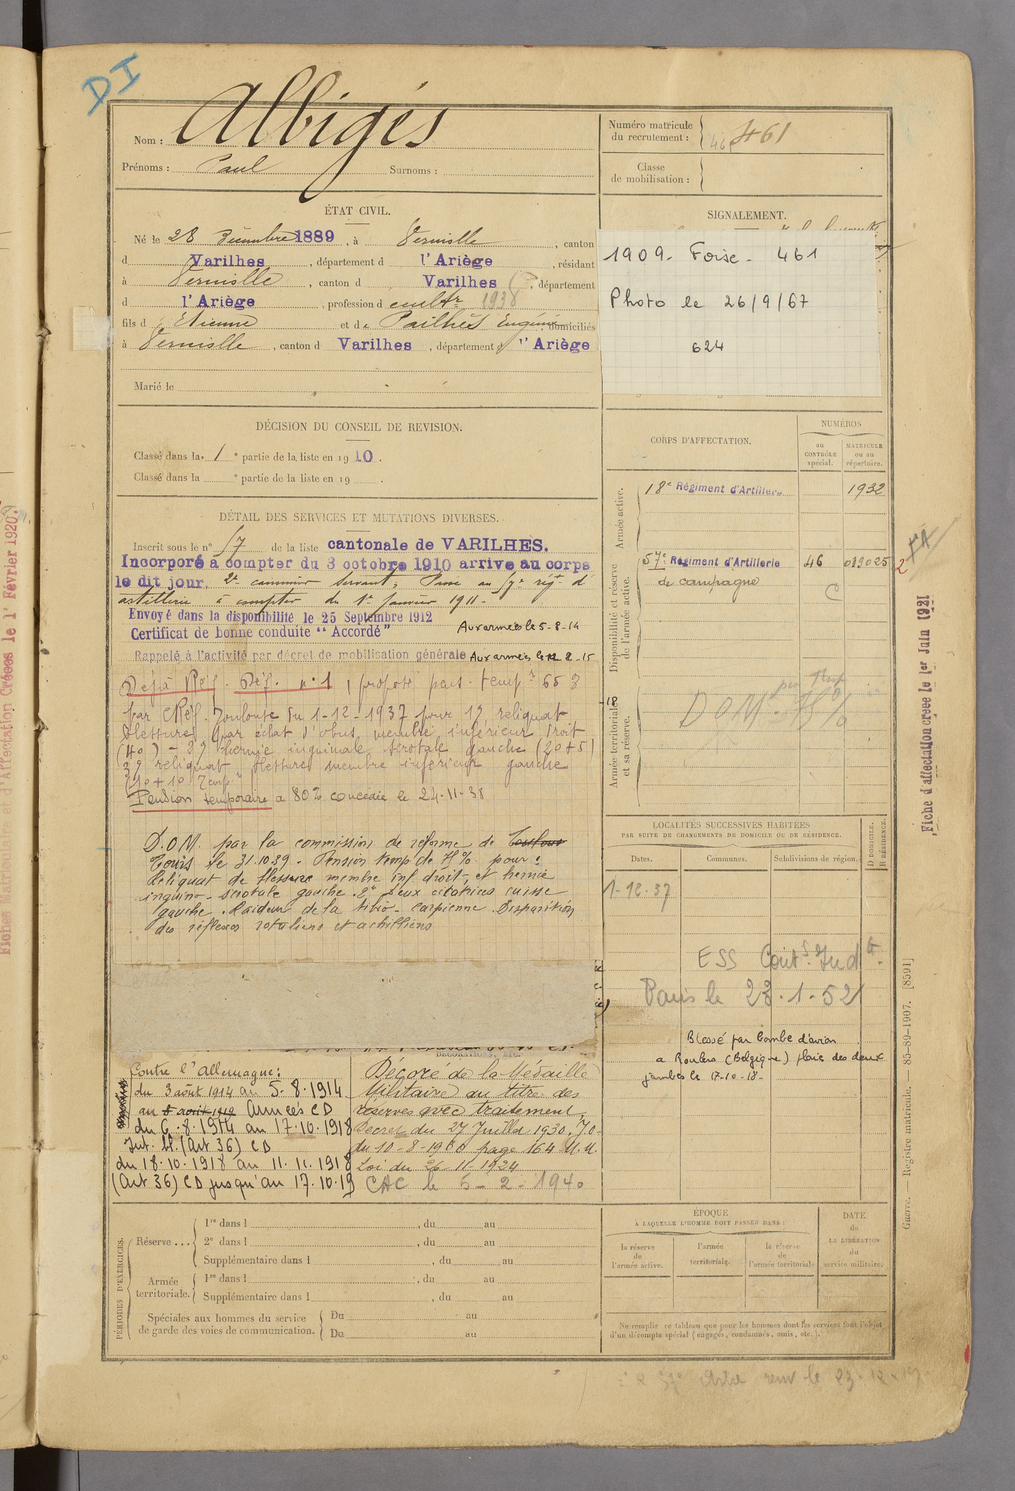 DI
Nom : Albigés
Prénoms : Paul Surnoms :
Numéro matricule du recrutement : 461
Classe de mobilisation :
ÉTAT CIVIL.
Né le 28 Décembre 1889, à Verniolle, canton
d Varilhes, département d l'Ariège, résidant
à Verniolle, canton d Varilhes, département
d l'Ariège, profession d cultr 1938
fils d Etienne et de Pailhés Eugénie domiciliés
à Verniolle, canton d Varilhes, département d l'Ariège
Marié le
SIGNALEMENT.
1909 - Foix - 461
Photo le 26/9/67
624
DÉCISION DU CONSEIL DE REVISION.
Classé dans la 1e partie de la liste en 1910.
Classé dans la e partie de la liste en 19 .
DÉTAIL DES SERVICES ET MUTATIONS DIVERSES.
Inscrit sous le n° 57 de la liste cantonale de VARILHES.
Incorporé à compter du 3 octobre 1910 arrive au corps
le dit jour. 2e canonnier servant; Passé au 57e régt d'
artillerie à compter du 1er Janvier 1911.
Envoyé dans la disponibilité le 25 Septembre 1912
Certificat de bonne conduite "Accordé" Aux armées le 5-8-14
Rappelé à l'activité par décret de mobilisation générale Aux armées le 2-15
Déjà Réf. Déf. n° 1, proposé pens. temp. 65 %
par C Réf. Toulouse du 1-12-1937 pour 1° reliquat
blessure par éclat d'obus, membre inférieur droit
(40) - 2° hernie inguinale scrotale gauche (20+5)
3° reliquat blessure membre inférieur gauche
(10+10 Temp.
Pension temporaire à 80% concédée le 24-11-38
D.O.M. par la commission de réforme de Toulouse
Tours le 31.10.39 - Pension temp de 75% pour :
Reliquat de blessure membre inf. droit, et hernie
inguino-scrotale gauche. 2° deux cicatrices cuisse
gauche. Raideur de la tibio-tarsienne. Disparition
des réflexes rotuliens et achilliens
CORPS D'AFFECTATION.
NUMÉROS
au CONTRÔLE spécial.
MATRICULE ou au répertoire.
Armée active.
18e Régiment d'Artillerie 1932
Disponibilité et réserve de l'armée active.
57e Régiment d'Artillerie 46 013025
de campagne C
Armée territoriale et sa réserve.
D.O.M. 75%
LOCALITÉS SUCCESSIVES HABITÉES
PAR SUITE DE CHANGEMENTS DE DOMICILE OU DE RÉSIDENCE.
D DOMICILE. R RÉSIDENCE.
Dates. Communes. Subdivisions de région.
1-12-37
ESS
Paris le 23.1.52
Blessé par bombe d'avion
a Roulers (Belgique) plaie des deux
jambes le 17-10-18-
Contre l'Allemagne :
du 3 août 1914 au 5-8-1914
au 5 août 1914 Armées CD
du 6-8-1914 au 17-10-1918
Int. (Art 36) CD
du 18-10-1918 au 11-11-1918
(Art 36) CD jusqu'au 17-10-19
DÉCORATIONS, ETC.
Décoré de la Médaille
Militaire au titre des
réserves avec traitement
Décret du 27 Juillet 1930. J.O.
du 10-8-1930 page 164 M.M.
Loi du 26-11-1924
CAC le 5-2-1940
PÉRIODES D'EXERCICES.
Réserve ... 1re dans l , du au
2e dans l , du au
Supplémentaire dans l , du au
Armée territoriale. 1re dans l , du au
Supplémentaire dans l , du au
Spéciales aux hommes du service de garde des voies de communication. Du au
Du au
ÉPOQUE
À LAQUELLE L'HOMME DOIT PASSER DANS :
la réserve de l'armée active.
l'armée territoriale.
la réserve de l'armée territoriale
DATE de LA LIBÉRATION du service militaire.
Ne remplir ce tableau que pour les hommes dont les services font l'objet
d'un décompte spécial (engagés, condamnés, omis, etc.).
Guerre. — Registre matricule. — 85-89-1907. [8591]
Fiche d'affectation créée le 1er Juin 1921
Fiches Matriculaire et d'Affectation Créées le 1er Février 1920.